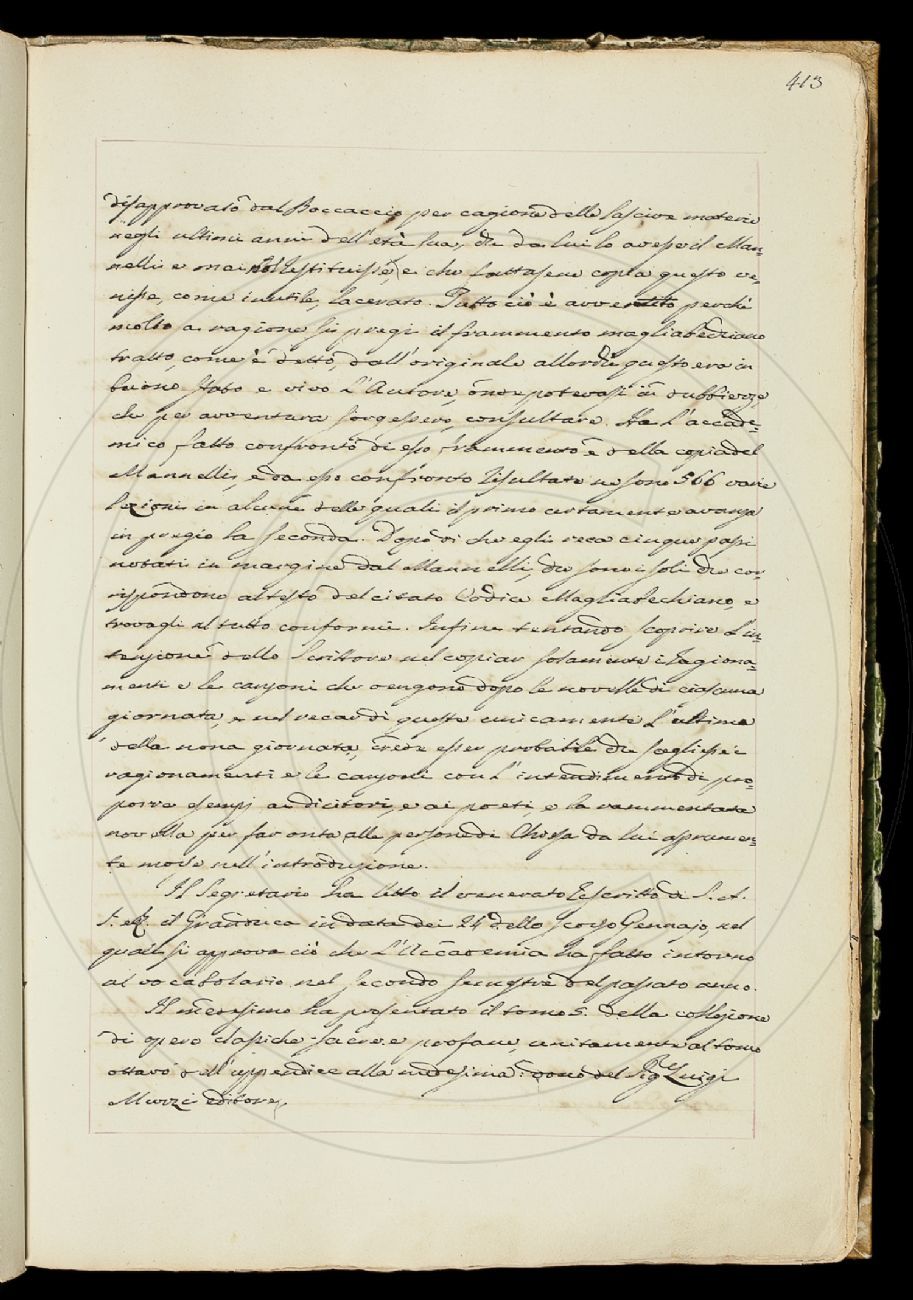 413
disapprovato dal Boccaccio per cagione delle lascive materie
negli ultimi anni dell'età sua, che da lui lo avesse il Man=
nelli e mai nol restituisse, e che trattasene copia questo ve=
nisse, come inutile, lacerato. Tutto ciò è avvenuto perchè
molto a ragione si pregi il frammento magliabechiano
tratto, come è detto, dall'originale allorchè questo era in
buono stato e vivo l'Autore, onde potevasi in dubbiezze,
che per avventura sorgessero, consultare. Ha l'accade=
mico fatto confronto di esso frammento e della copia del
Mannelli, e da esso confronto resultate ne sono 566 varie
lezioni in alcune delle quali il primo certamente avanza
in pregio la seconda. Dopo di che egli reca cinque passi
notati in margine dal Mannelli, che sono i soli che cor=
rispondono al testo del citato Codice Magliabechiano, e
trovagli al tutto conformi. Infine tentando scoprire l'in=
tenzione dello Scrittore nel copiar solamente i ragiona=
menti e le canzoni che vengono dopo le novelle di ciascuna
giornata, e nel recar di queste unicamente l'ultima
della nona giornata, crede esser probabile che scegliesse i
ragionamenti e le canzoni con l'intendimento di pro=
porre esempj ai dicitori, e ai poeti, e la rammentata
novella per far onta alle persone di Chiesa da lui aspramen=
te morse nell'introduzione.
Il Segretario ha letto il venerato rescritto di S. A.
I. e R. il Granduca in data dei 24 dello scorso Gennajo, nel
quale si approva ciò che l'Accademia ha fatto intorno
al vocabolario nel secondo semestre del passato anno.
Il medesimo ha presentato il tomo 5. della collezione
di opere classiche sacre e profane, unitamente al tomo
ottavo dell'appendice alla medesima: dono del Sig. Luigi
Muzzi editore.